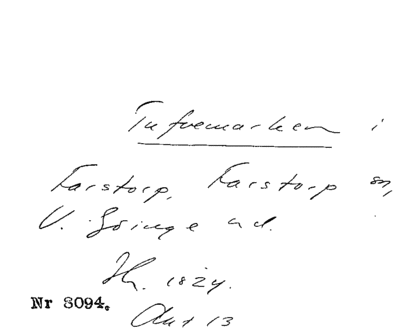 Tufvemarken i
Farstorp, Farstorp sn,
V. Göinge hd.
Hr. 1824.
Nr 3094. Akt 13